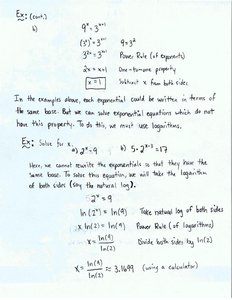 Ex: (cont.)
b) 9^x = 3^(x+1)
(3²)^x = 3^(x+1) 9 = 3²
3^(2x) = 3^(x+1) Power Rule (of exponents)
2x = x+1 One-to-one property
x = 1 Subtract x from both sides
In the examples above, each exponential could be written in terms of
the same base. But we can solve exponential equations which do not
have this property. To do this, we must use logarithms.
Ex: Solve for x.
a) 2^x = 9 b) 5 · 2^(x-1) = 17
Here, we cannot rewrite the exponentials so that they have the
same base. To solve this equation, we will take the logarithm
of both sides (say the natural log).
2^x = 9
ln(2^x) = ln(9) Take natural log of both sides
x ln(2) = ln(9) Power Rule (of logarithms)
x = ln(9)/ln(2) Divide both sides by ln(2)
x = ln(9)/ln(2) ≈ 3.1699 (using a calculator)